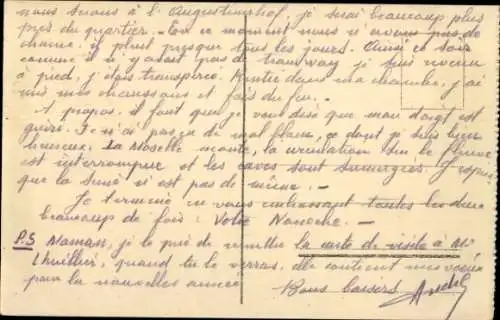 nous serons à l'Augustinerhof, je serai beaucoup plus
près du quartier. En ce moment nous n'avons pas de
chance, il pleut presque tous les jours. Ainsi ce soir
comme il n'y avait pas de tramway je suis revenu
à pied, j'étais transpercé. Rentré dans ma chambre, j'ai
mis mes chaussons et fait du feu. -
A propos, il faut que je vous dise que mon doigt est
guéri. Je n'ai pas de mal blanc, ce dont je suis bien
heureux. La Moselle monte, la circulation sur le fleuve
est interrompue et les caves sont submergées. J'espère
que la Seine n'est pas de même. -
Je termine en vous embrassant toutes les deux
beaucoup de fois. Votre
P.S. Maman, je te prie de remettre la carte de visite à Mr
Lhuillier, quand tu le verras, elle contient mes voeux
pour la nouvelle année
Bons baisers André